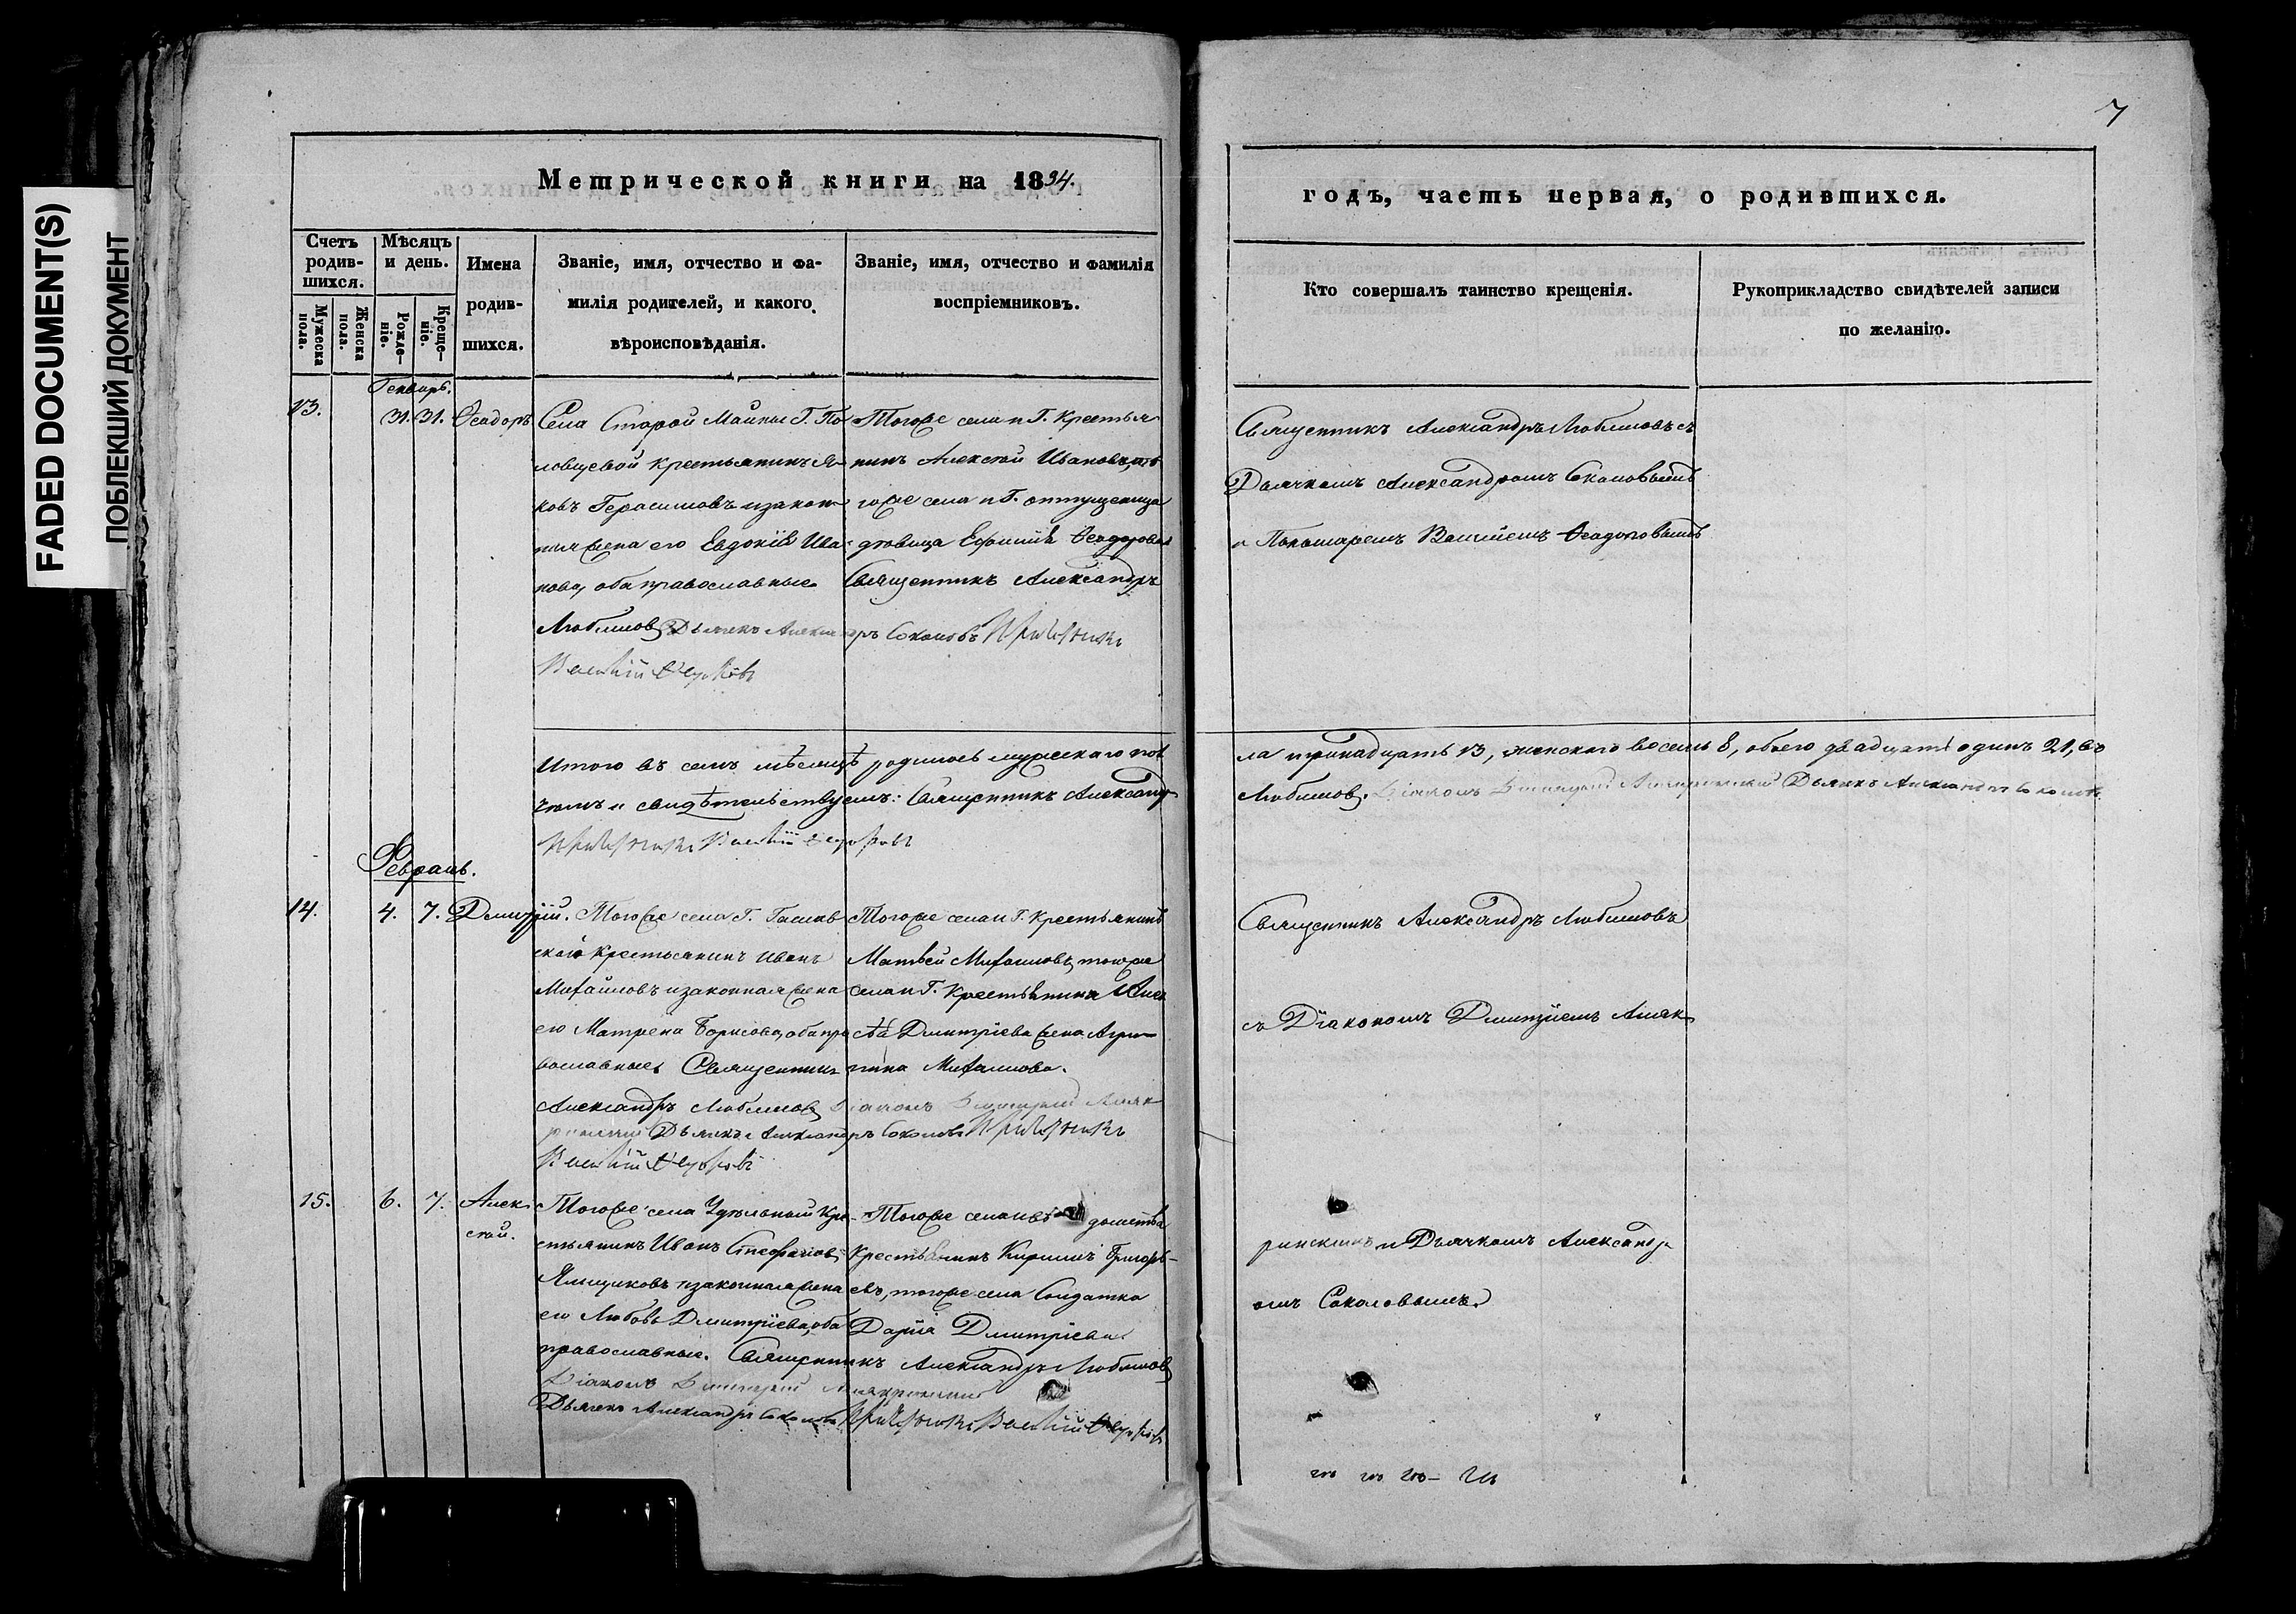 FADED DOCUMENT(S)
ПОБЛЕКШИЙ ДОКУМЕНТ
7
Метрической книги на 1834.
годъ, часть первая, о родившихся.
Счетъ родив-шихся.
Мужеска пола.
Женска пола.
Мѣсяцъ и день.
Рожде-ніе.
Креще-ніе.
Имена
родив-
шихся.
Званіе, имя, отчество и фа-
милія родителей, и какого
вѣроисповѣданія.
Званіе, имя, отчество и фамилія
воспріемниковъ.
Кто совершалъ таинство крещенія.
Рукоприкладство свидѣтелей записи
по желанію.
Генварь.
13.
31. 31.
Ѳеодоръ
Села Старой Майны Г. По-
ловцевой крестьянинъ Я-
ковъ Герасимовъ и закон-
ная жена его Евдокія Ива-
нова, оба православные
Тогоже села и Г. Крестья-
нинъ Алексѣй Ивановъ, то-
гоже села и Г. отпущеница
дѣвица Ефимія Ѳеодорова
Священникъ Александръ
Любимовъ Дьячекъ Александръ Соколовъ
Василій
Священникъ Александръ Любимовъ съ
Дьячкомъ Александромъ Соколовымъ
и Пономаремъ Василіемъ Ѳеодоровымъ
Итого въ семъ мѣсяцѣ родилось мужескаго по-
ла тринадцать 13, женскаго восемь 8, обоего двадцать одинъ 21, въ
чемъ и свидѣтельствуемъ: Священникъ Александръ
Любимовъ. Діаконъ Димитрій Дьячекъ Александръ Соколовъ
Василій
Февраль.
14.
4. 7.
Димитрій.
Тогоже села Г.
скаго крестьянинъ Иванъ
Михайловъ и законная жена
его Матрена Борисова, оба пра-
вославные Священникъ
Александръ Любимовъ Діаконъ Димитрій
Дьячекъ Александръ Соколовъ
Василій
Тогоже села и Г. Крестьянинъ
Матвей Михайловъ, тогоже
села и Г. Крестьянина Алек-
сѣя Дмитріева жена Агри-
пина Михайлова.
Священникъ Александръ Любимовъ
съ Діакономъ Димитріемъ
15.
6. 7.
Алек-
сѣй.
Тогоже села Удѣльный Кре-
стьянинъ Иванъ Стефановъ
Ямщиковъ и законная жена
его Любовь Дмитріева, оба
православные. Священникъ Александръ Любимовъ
Діаконъ Димитрій
Дьячекъ Александръ Соколовъ Василій
Тогоже села
Крестьянинъ Кирилъ Григорь-
евъ, тогоже села Солдатка
Дарія Дмитріева
и Дьячкомъ Александр-
омъ Соколовымъ.